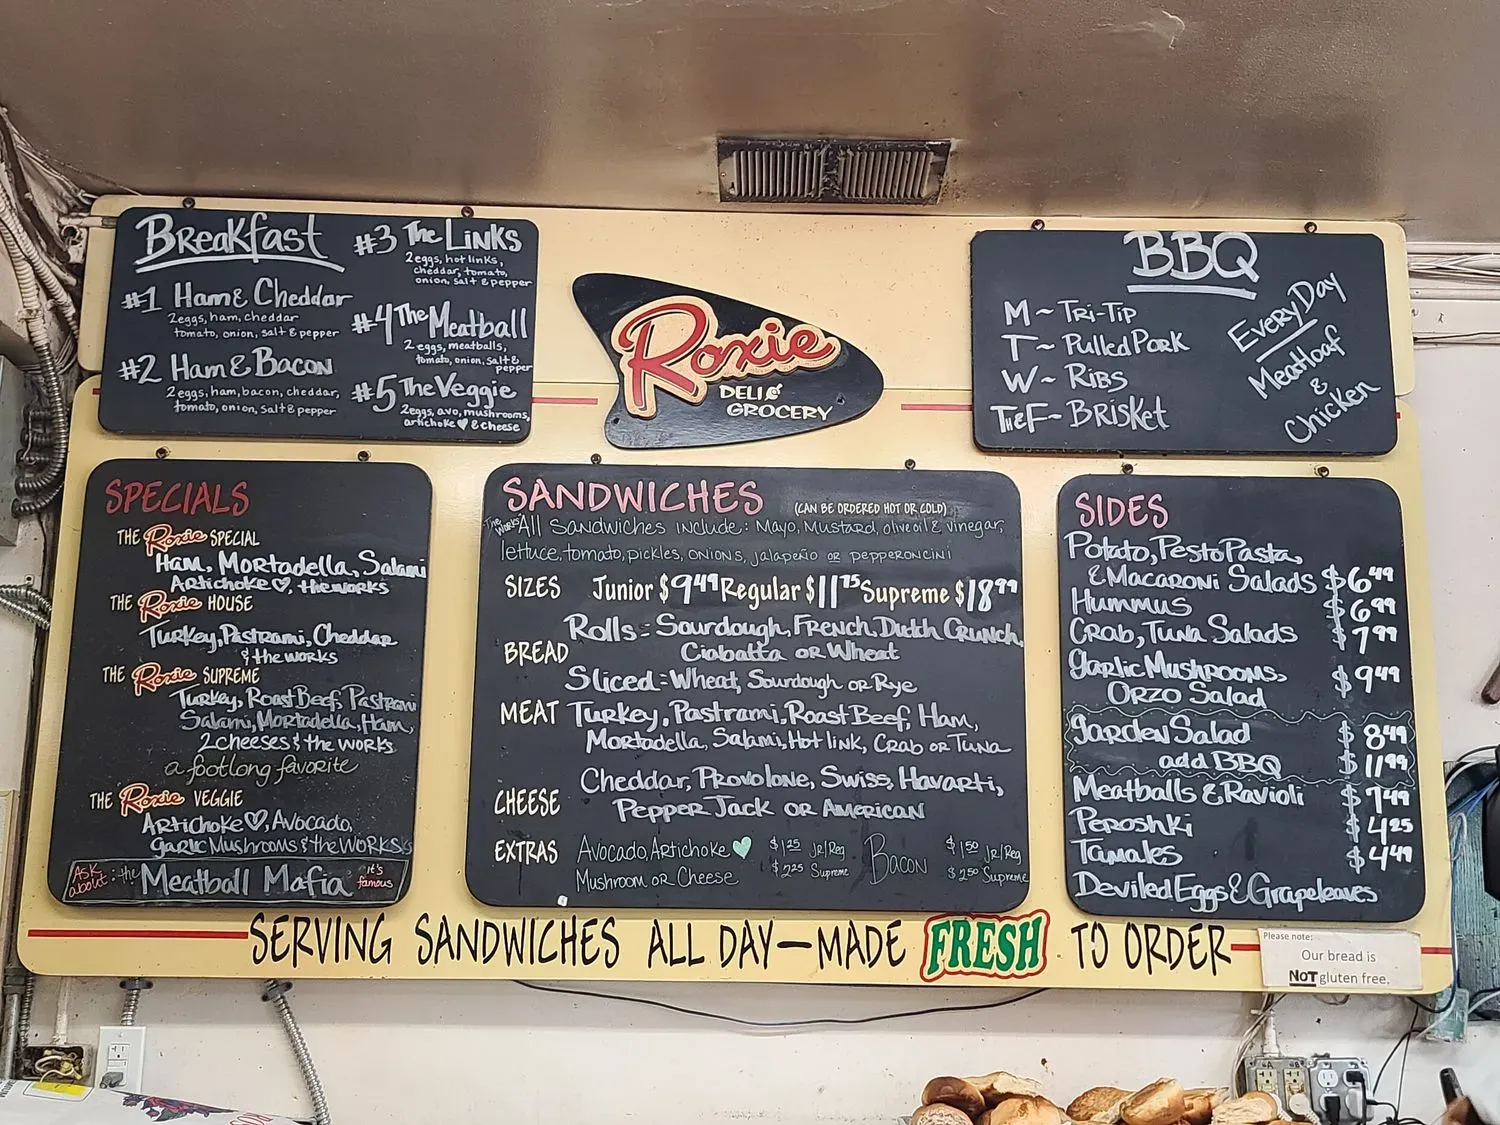 Breakfast
#1 Ham & Cheddar
2 eggs, ham, cheddar
tomato, onion, salt & pepper
#2 Ham & Bacon
2 eggs, ham, bacon, cheddar,
tomato, onion, salt & pepper
#3 The Links
2 eggs, hot links,
cheddar, tomato,
onion, salt & pepper
#4 The Meatball
2 eggs, meatballs,
tomato, onion, salt &
pepper
#5 The Veggie
2 eggs, avo, mushrooms,
artichoke ♥ & cheese
Roxie
DELI &
GROCERY
BBQ
M ~ Tri-Tip
T ~ Pulled Pork
W ~ Ribs
TH & F ~ Brisket
EveryDay
Meatloaf
&
Chicken
SPECIALS
THE Roxie SPECIAL
Ham, Mortadella, Salami
Artichoke ♡, the works
THE Roxie HOUSE
Turkey, Pastrami, Cheddar
& the works
THE Roxie SUPREME
Turkey, Roast Beef, Pastrami
Salami, Mortadella, Ham,
2 cheeses & the works
a footlong favorite
THE Roxie VEGGIE
Artichoke ♡, Avocado,
Garlic Mushrooms & the works
Ask about: the Meatball Mafia it's famous
SANDWICHES (CAN BE ORDERED HOT OR COLD)
"The Works" All Sandwiches include: Mayo, Mustard, olive oil & vinegar,
lettuce, tomato, pickles, onions, jalapeño or pepperoncini
SIZES Junior $9.49 Regular $11.75 Supreme $18.99
BREAD Rolls: Sourdough, French, Dutch Crunch,
Ciabatta or Wheat
Sliced: Wheat, Sourdough or Rye
MEAT Turkey, Pastrami, Roast Beef, Ham,
Mortadella, Salami, Hot link, Crab or Tuna
CHEESE Cheddar, Provolone, Swiss, Havarti,
Pepper Jack or American
EXTRAS Avocado, Artichoke ♥ $1.25 Jr/Reg Bacon $1.50 Jr/Reg
Mushroom or Cheese $2.25 Supreme $2.50 Supreme
SIDES
Potato, Pesto Pasta,
& Macaroni Salads $6.49
Hummus $6.99
Crab, Tuna Salads $7.99
Garlic Mushrooms,
Orzo Salad $9.49
Garden Salad $8.49
add BBQ $11.99
Meatballs & Ravioli $7.49
Peroshki $4.25
Tamales $4.49
Deviled Eggs & Grapeleaves
SERVING SANDWICHES ALL DAY — MADE FRESH TO ORDER
Please note:
Our bread is
NOT gluten free.